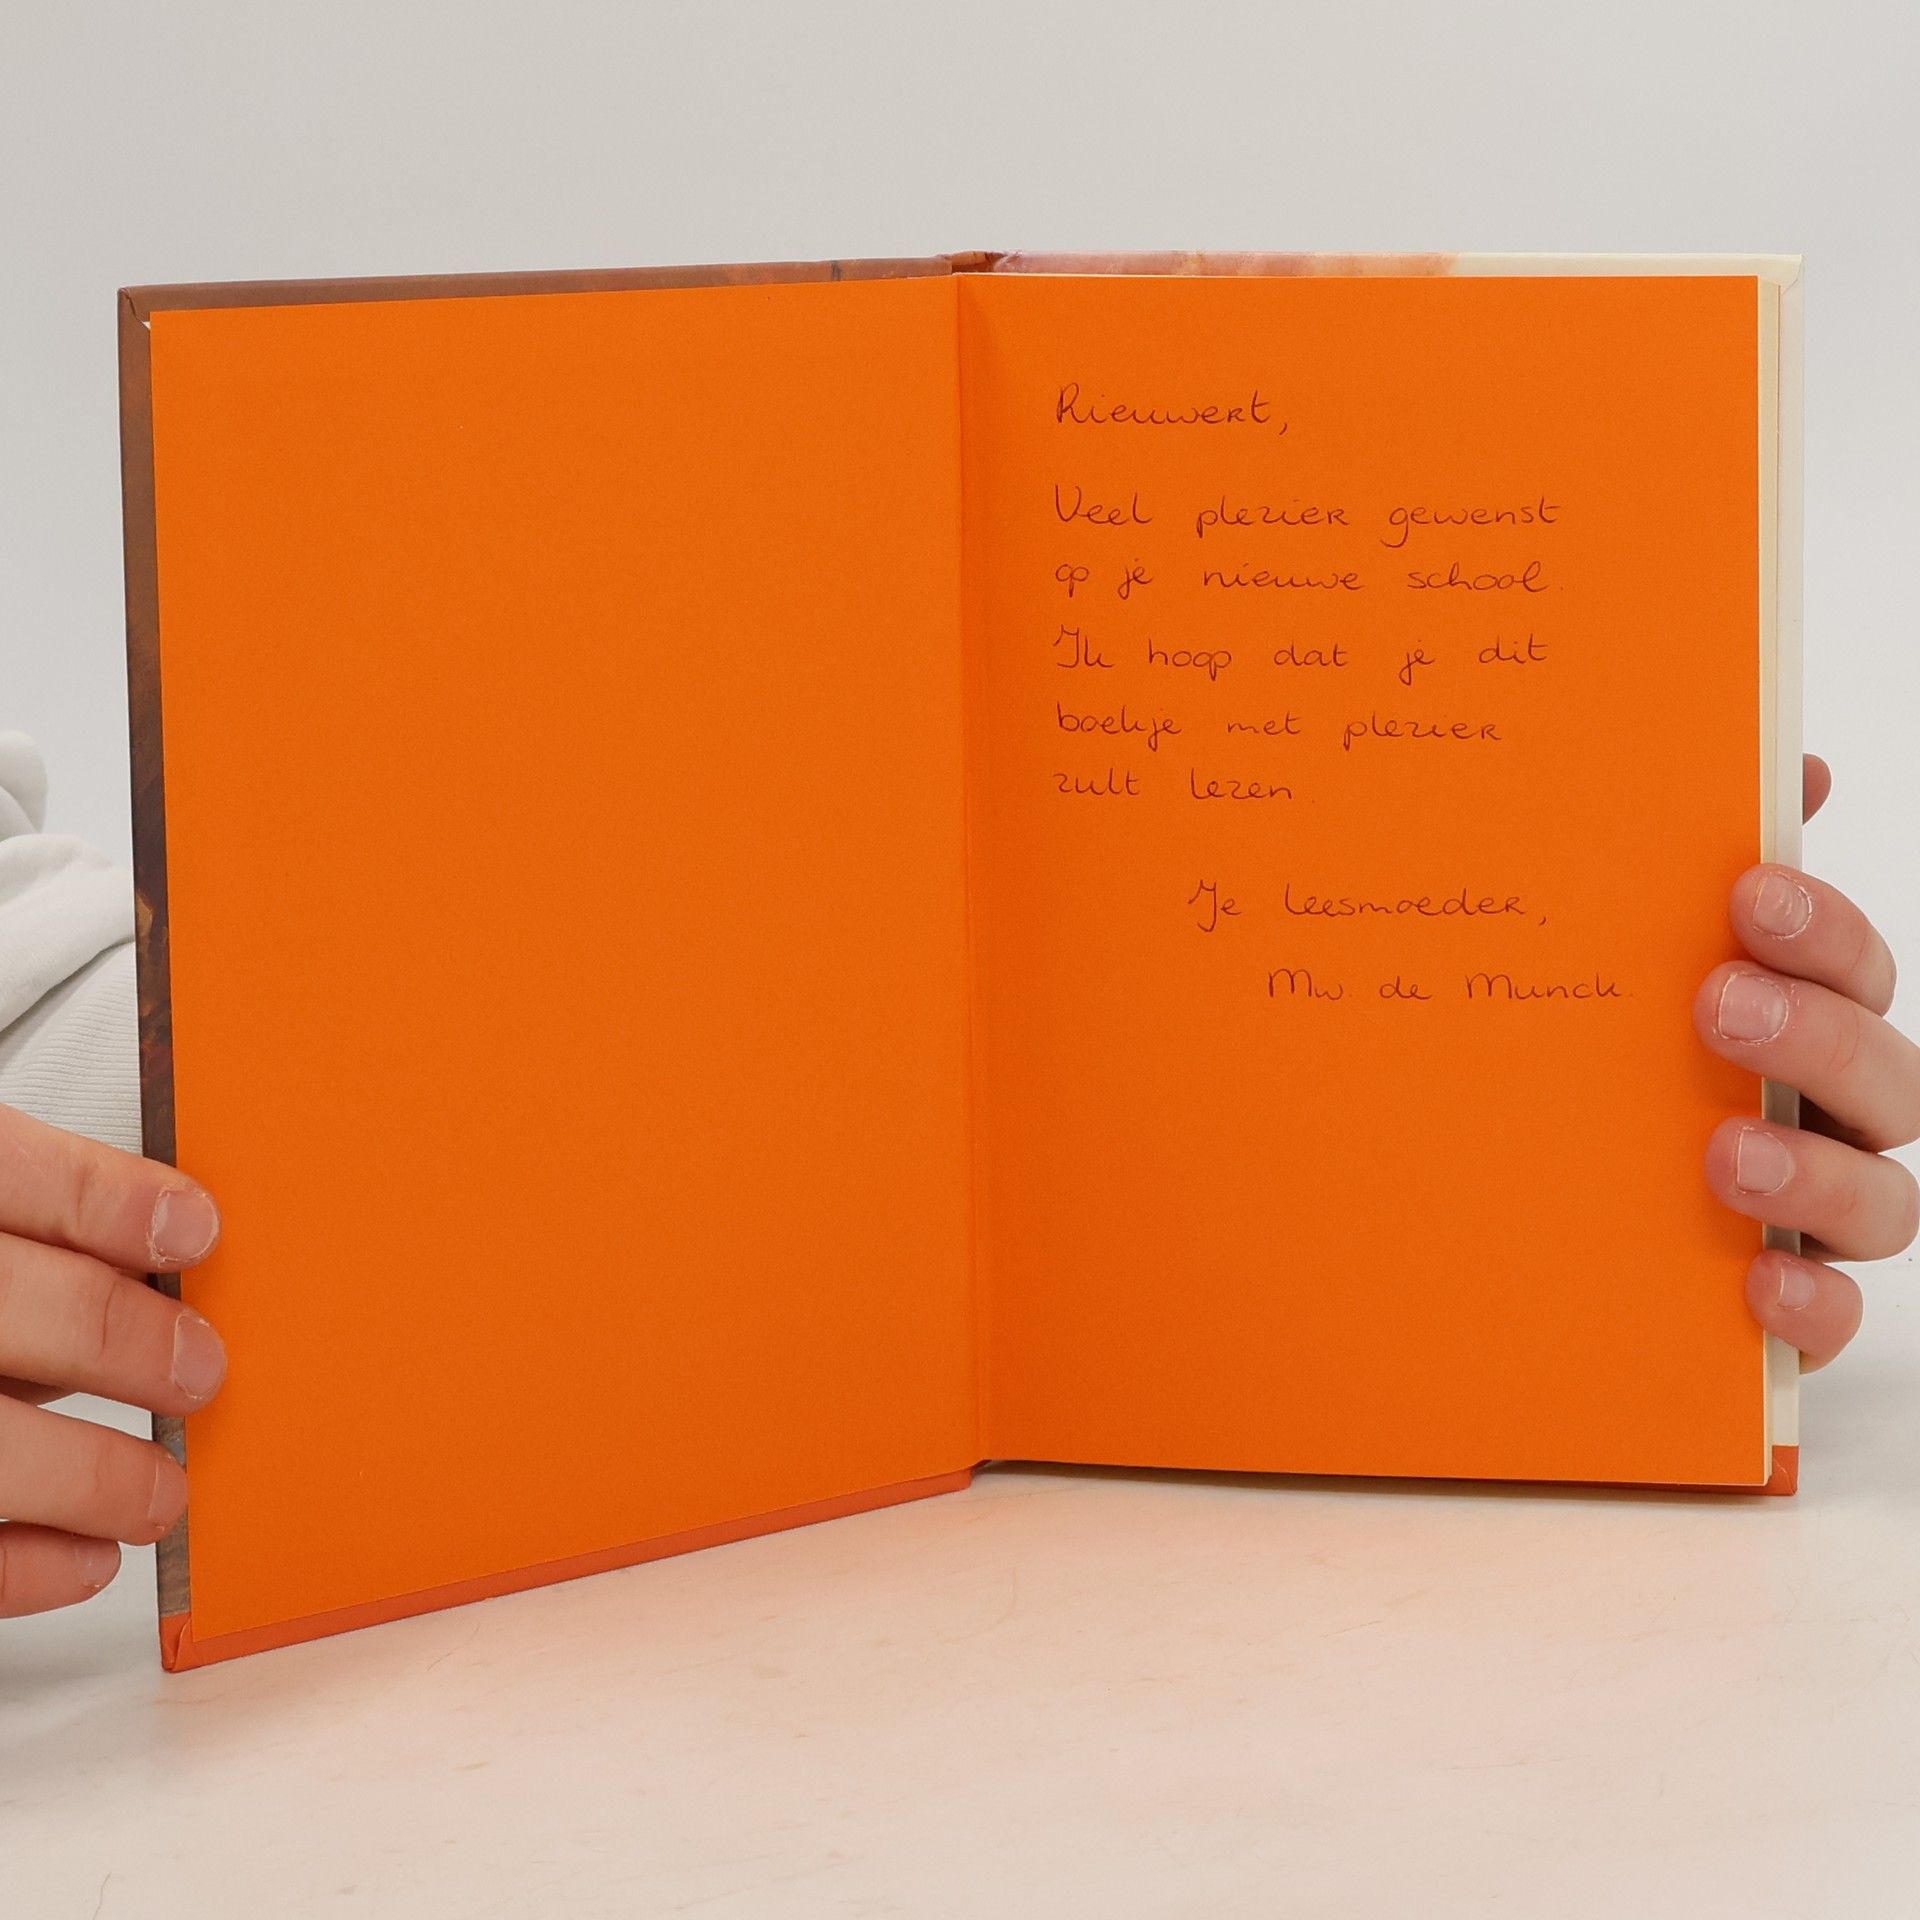 Rieuwert,
Veel plezier gewenst
op je nieuwe school.
Ik hoop dat je dit
boekje met plezier
zult lezen.
Je leesmoeder,
Mw. de Munck.